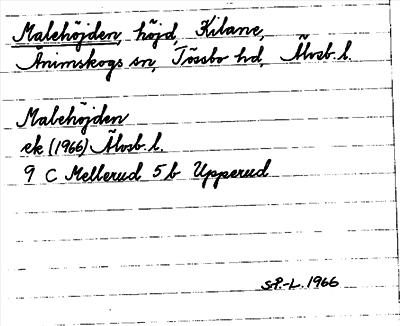 Malehöjden, höjd, Kilane,
Ånimskogs sn, Tössbo hd, Älvsb. l.
Malehöjden
ek (1966) Älvsb. l.
9 C Mellerud 5 b Upperud
S.P.-L. 1966